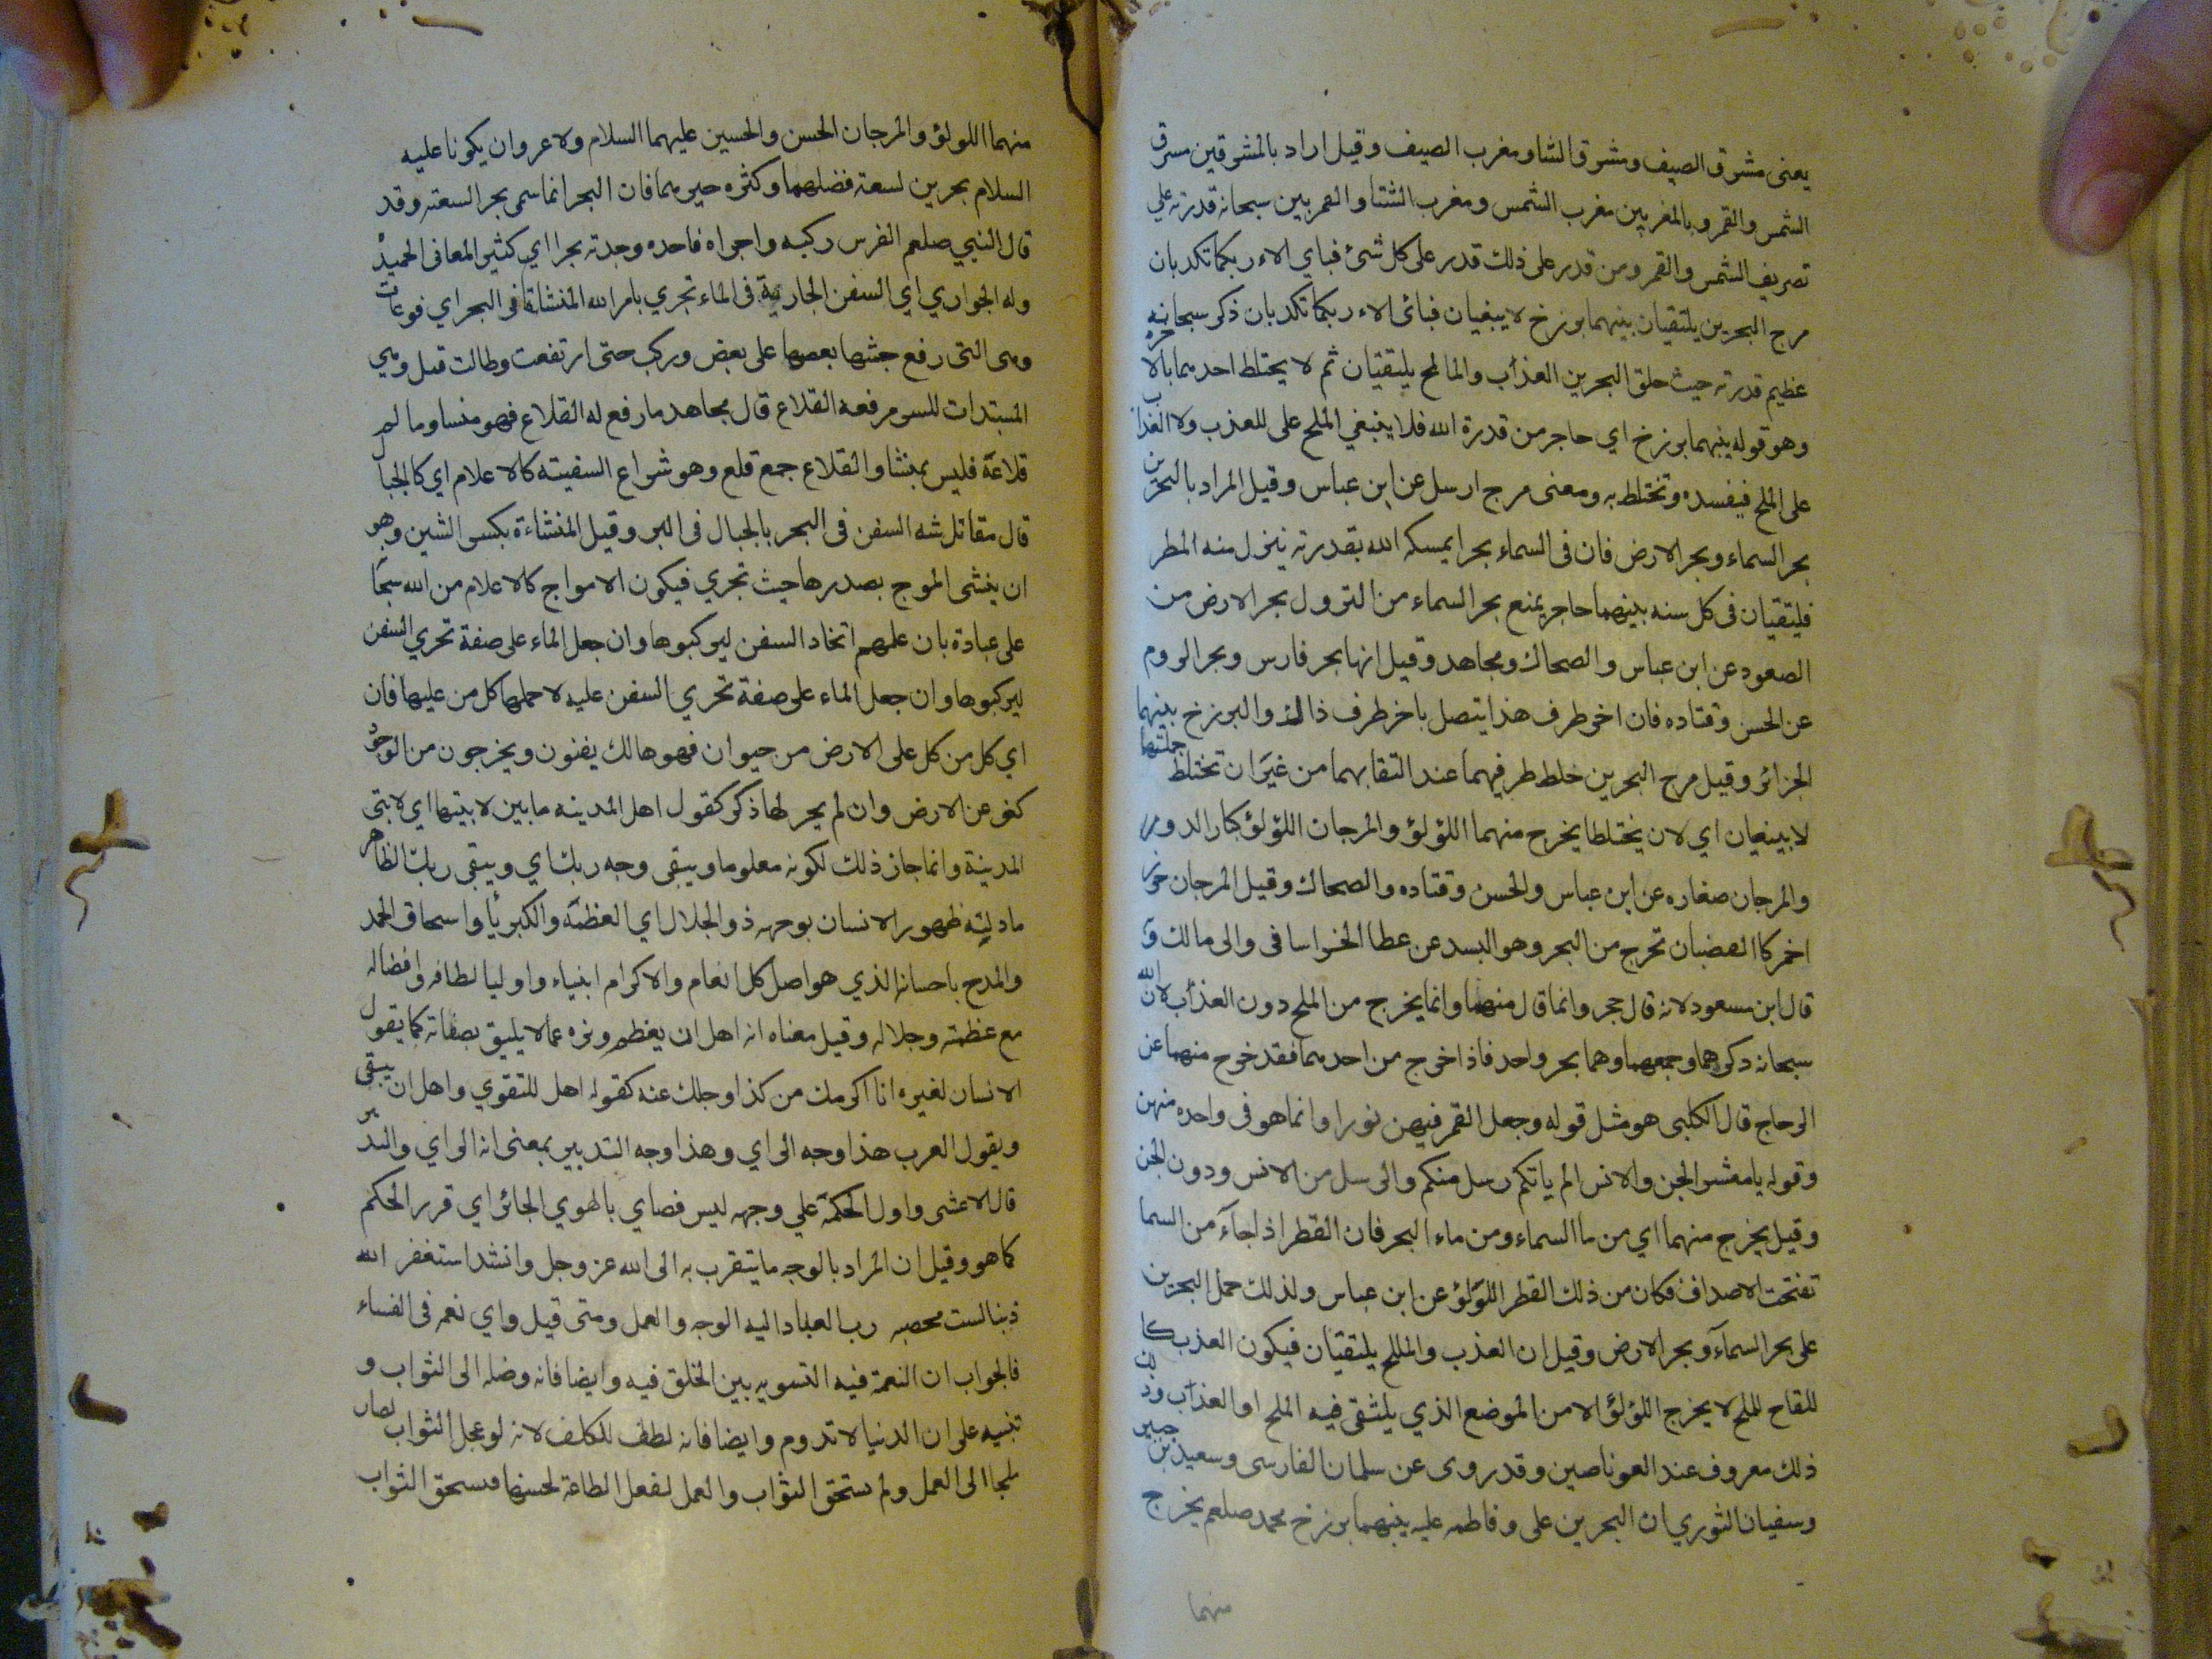 يعنى مشرق الصيف ومشرق الشتا ومغرب الصيف وقيل اراد بالمشرقين مشرق
الشمس والقمر وبالمغربين مغرب الشمس ومغرب الشتا والقمر بين سبحانه قدرته على
تصريف الشمس والقمر ومن قدر على ذلك قدر على كل شئ فباي الاء ربكما تكذبان
مرج البحرين يلتقيان بينهما برزخ لا يبغيان فبائ الاء ربكما تكذبان ذكر سبحانه
عظيم قدرته حيث خلق البحرين العذب والمالح يلتقيان ثم لا يختلط احدهما بالاخره
وهو قوله بينهما برزخ اي حاجز من قدرة الله فلا ينبغي الملح على للعذب ولا العذاب
على الملح فيفسده وتختلط به ومعنى مرج ارسل عن ابن عباس وقيل المراد بالبحرين
بحر السماء وبحر الارض فان فى السماء بحرا يمسكه الله بقدرته ينزل منه المطر
فيلتقيان فى كل سنه بينهما حاجز يمنع بحر السماء من النزول بحر الارض من
الصعود عن ابن عباس والضحاك ومجاهد وقيل انها بحر فارس وبحر الروم
عن الحسن وقتاده فان اخر طرف هذا يتصل باخر طرف ذالك والبرزخ بينهما
الجزائر وقيل مرج البحرين خلط طرفيهما عند التقابهما من غير ان تختلط جملتها
لا يبغيان اي لان يختلطا يخرج منهما اللؤلؤ والمرجان اللؤلؤ كبار الدور
والمرجان صغاره عن ابن عباس والحسن وقتاده والضحاك وقيل المرجان خرز
احمر كاالقضبان تخرج من البحر وهو البسد عن عطا الخراسافى والى مالك و
قال ابن مسعود لانه قال حجر وانما قال منهما وانما يخرج من الملح دون العذاب لان الله
سبحانه ذكرهما وجمعهما وهما بحر واحد فاذا خرج من احدهما فقد خرج منهما عن
الرحاج قال الكلبى هو مثل قوله وجعل القمر فيهن نورا وانما هو فى واحده منهن
وقوله يا معشر الجن والانس الم ياتكم رسل منكم والرسل من الانس ودون الجن
وقيل يخرج منهما اي من ما السماء ومن ماء البحر فان القطر اذا جاء من السما
تفتحت الاصداف فكان من ذلك القطر اللؤلؤ عن ابن عباس ولذلك حمل البحرين
على بحر السماء وبحر الارض وقيل ان العذب والمللح يلتقيان فيكون العذب كا
للقاح للملح لا يخرج اللؤلؤ الا من الموضع الذي يلتقى فيه الملح او العذاب وذ
ذلك معروف عند العوناصين وقد روى عن سلمان الفارسى وسعيد بن جبير
وسفيان الثوري ان البحرين على وفاطمه عليه بينهما برزخ محمد صلعم يخرج
منهما
منهما اللولؤ والمرجان الحسن والحسين عليهما السلام ولا عروان يكونا عليه
السلام بحرين لسعة فضلهما وكثره خيرهما فان البحر انما سمى بحر السعته وقد
قال النبي صلعم الفرس ركبه واجراه فاحده وجدته بحرا اي كثير المعافى الحميدة
وله الجواري اي السفن الجارية فى الماء تجري بامر الله المنشاة فى البحر اي فوعات
وهى التى رفع خشبها بعضها على بعض وركب حتى ارتفعت وطالت قيل وهي
المبتدات للسير مرفعة القلاع قال مجاهد ما رفع له القلاع فهو منسا وما لم
قلاعة فليس بمنشا والقلاع جمع قلع وهو شراع السفينه كالاعلام اي كالجبال
قال مقاتل شبه السفن فى البحر بالجبال فى البر وقيل المنشاءة بكسر الشين وهو
ان ينشى الموج بصدرها حيث تجري فيكون الامواج كالاعلام من الله سبحا
على عبادة بان علمهم اتخاد السفن ليركبوها وان جعل الماء على صفة تحري السفن
ليركبوها وان جعل الماء على صفة تحري السفن عليه لاحملها كل من عليها فان
اي كل من كل على الارض من حيوان فهو هالك يفنون ويخرجون من الوجود
كغى عن الارض وان لم يجر لها ذكر كقول اهل المدينه ما بين لابيتها اي لابتى
المدينة وانما جاز ذلك لكونه معلوما ويبقى وجه ربك اي ويبقى ربك الظاهر
مادليته ظهور الانسان بوجهه ذو الجلال اي العظمة والكبريأ واسحاق الحمد
والمدح باحسانه الذي هو اصل كل انعام والاكرام انبياء واوليا لطافه وافضاله
مع عظمته وجلاله وقيل معناه انه اهل ان يعظم ونزه عما لا يليق بصفاته كما يقول
الانسان لغيره انا اكرمك من كذا وجلك عنه كقوله اهل للتقوي واهل ان يبقى
ويقول العرب هذا وجه الراي وهذا وجه التدبير بمعنى انه الراي والتدبر
قال الاعشى واول الحكمة علي وجهه ليس فصاي بالهوي الجائر اي قرر الحكم
كما هو وقيل ان المراد بالوجه ما يتقرب به الى الله عز وجل وانشد استغفر الله
ذنبا لست محصيه رب العباد اليه الوجه والعمل ومتى قيل واي نعم فى الفساء
فالجواب ان النعمة فيه التسويه بين الخلق فيه وايضا فانه وصله الى الثواب و
تنبيه على ان الدنيا لا تدوم وايضا فانه لطف للمكلف لانه لو عجل الثواب لصار
ملجا الى العمل ولم يستحق الثواب والعمل لفعل الطاعة لحسنها فيستحق الثواب